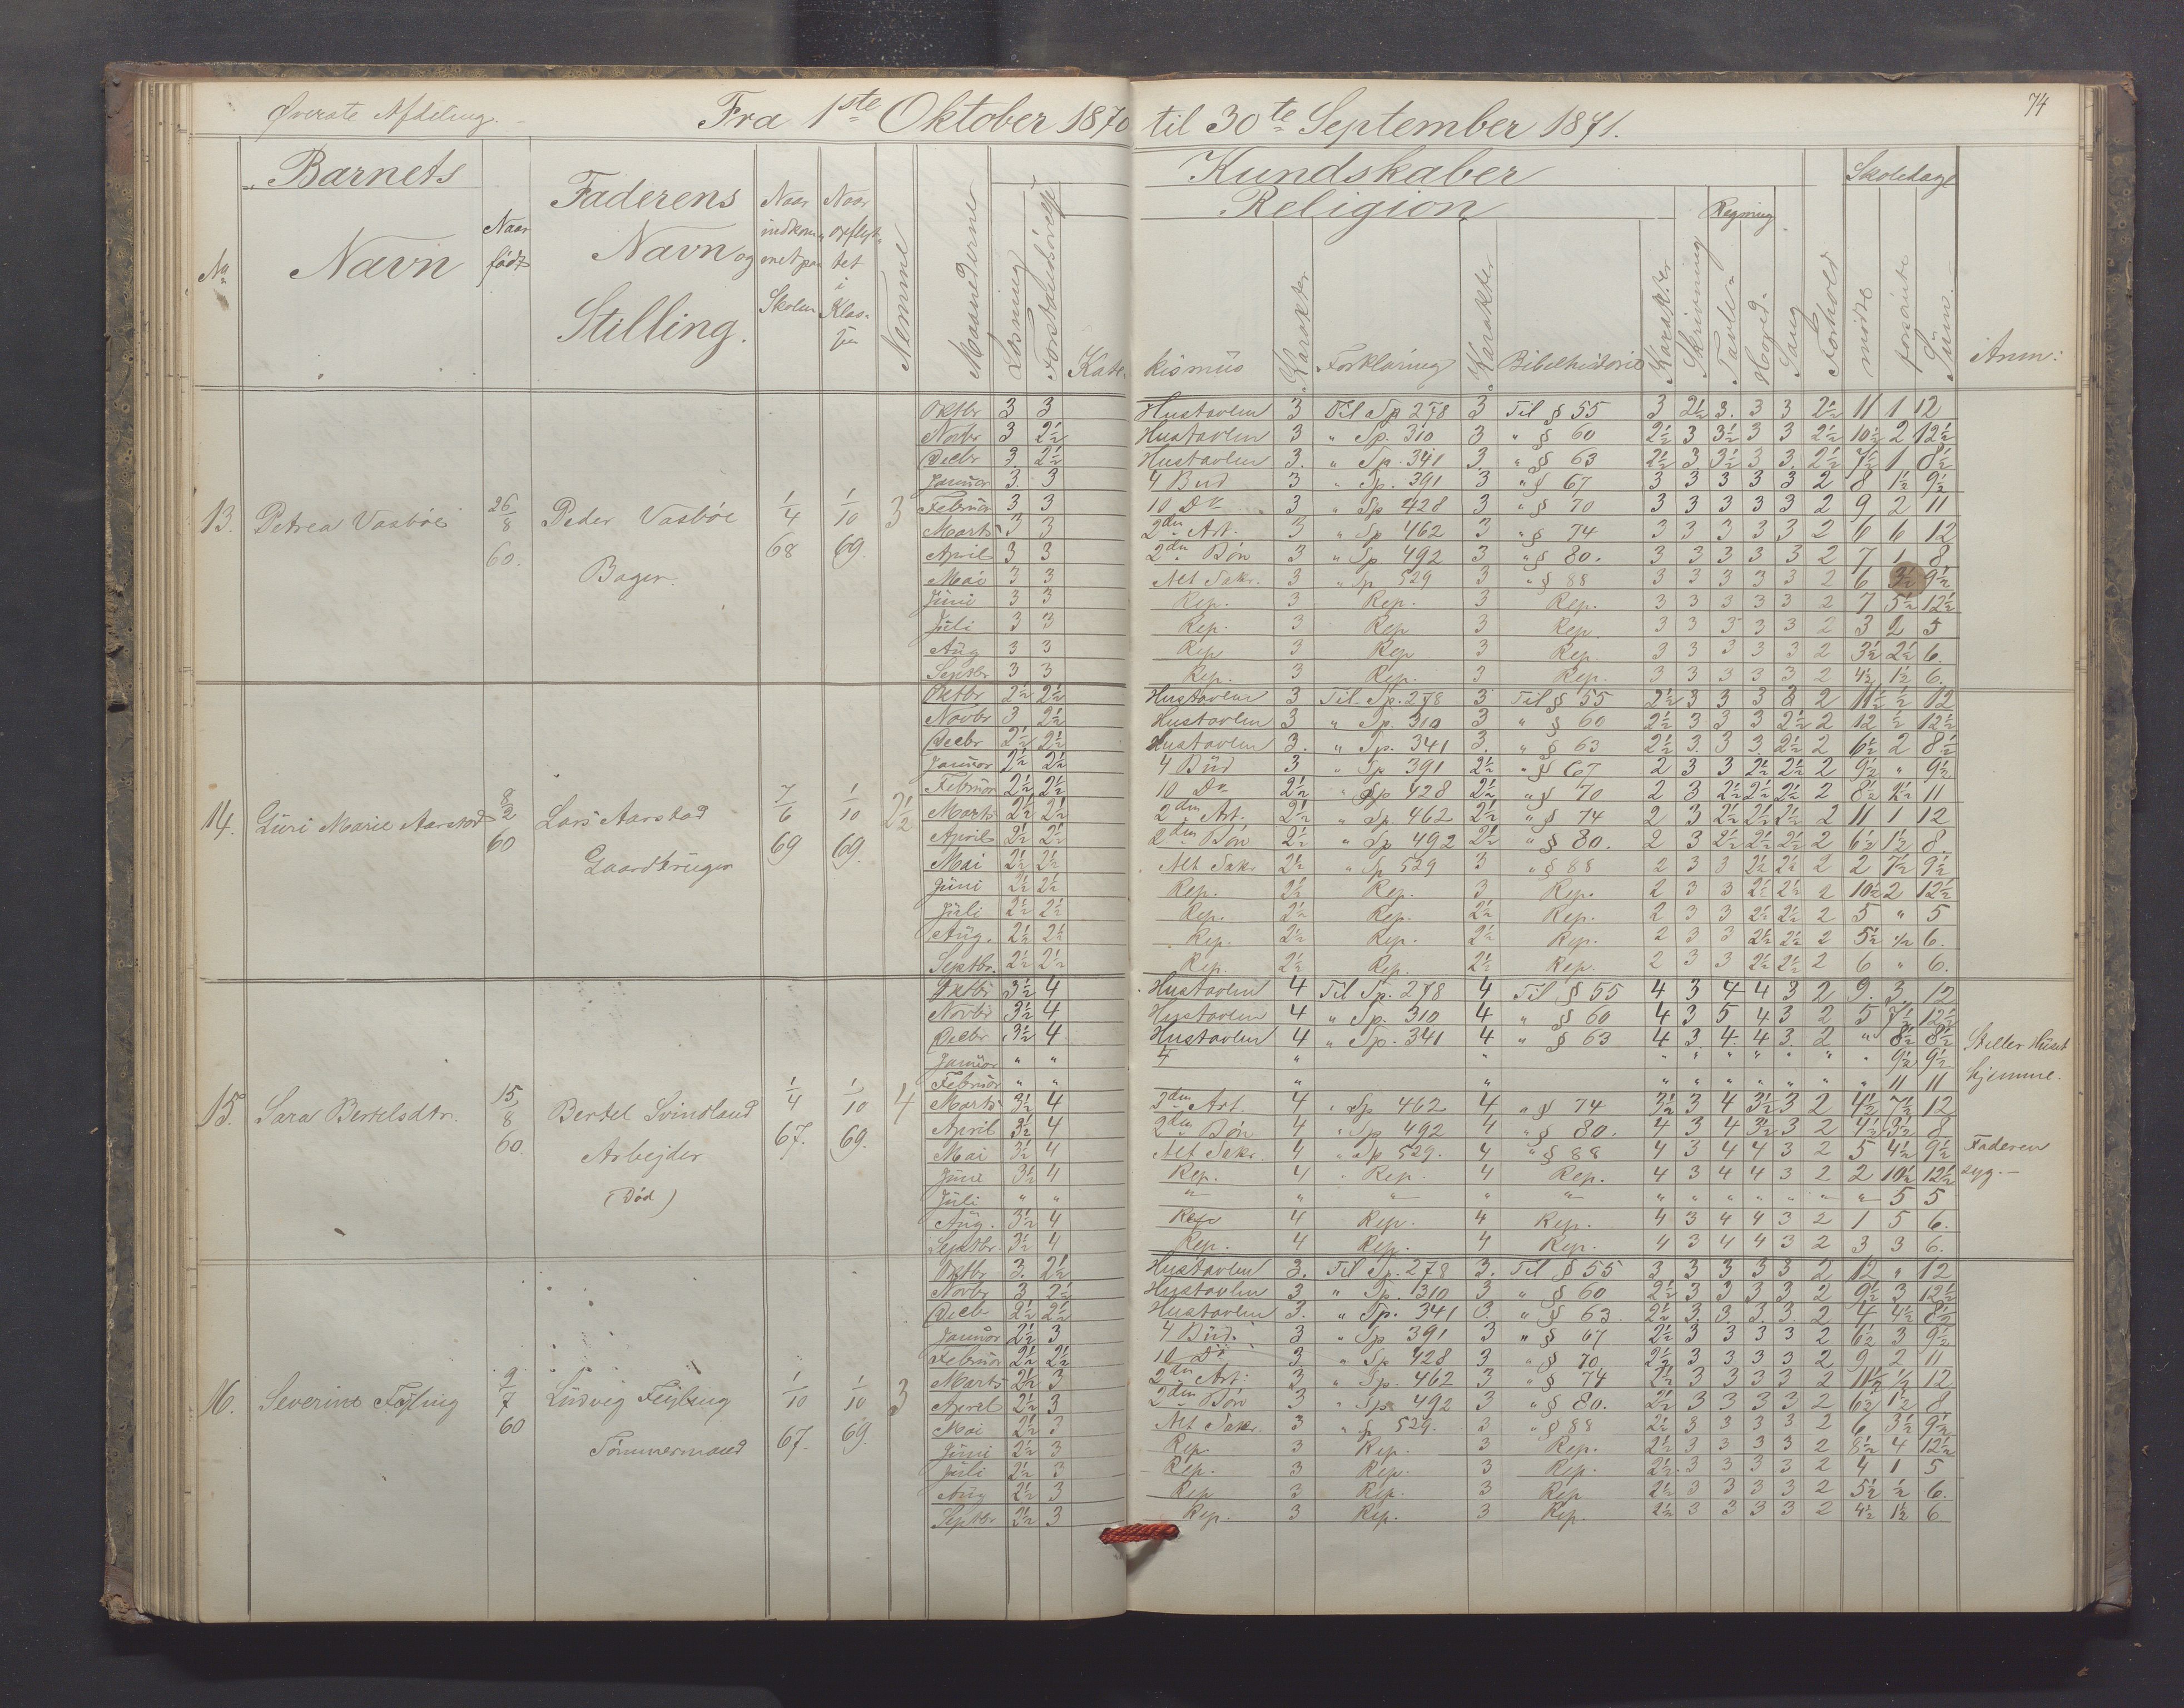 Øverste Afdeling. Fra 1ste Oktober 1870 til 30te September 1871. 74
Barnets Navn
Naar født
Faderens Navn og Stilling.
Naar indkommet paa Skolen
Naar opflyttet i Klassen
Nemme
Maanederne
Læsning
Forstandsøvelse
Kundskaber
Religion
Katekismus
Karakter
Forklaring
Karakter
Bibelhistorie
Karakter
Skrivning
Regning
Tavle-
Hoved-
Sang
Forhold
Skoledage
mødte
forsømte
Sum.
Anm:
13. Petrea Vasbøe 26/8 60. Peder Vasbøe Bager. 1/4 68 1/10 69. 3
Oktbr 3 3 Hustavlen 3 Til Sp 278 3 Til § 55 3 2½ 3. 3 3 2½ 11 1 12
Novbr 3 2½ Hustavlen 3 " Sp. 310 3 " § 60 2½ 3 3½ 3 3 2½ 10½ 2 12½
Decbr 3 2½ Hustavlen 3. " Sp. 341 3. " § 63 2½ 3 3½ 3 3. 2½ 7½ 1 8½
Januar 3. 3 4 Bud 3 " Sp. 391 3 " § 67 3 3 3 3 3 2 8 1½ 9½
Februar 3 3 10 Do 3 " Sp 428 3 " § 70 3 3 3 3 3 2 9 2 11
Marts 3 3 2den Art. 3 " Sp 462 3 " § 74 3 3 3 3 3 2 6 6 12
April 3 3 2den Bøn 3 " Sp 492 3 " § 80. 3 3 3 3 3 2 7 1 8
Mai 3 3 Alt Sakr. 3 " Sp 529 3 " § 88 3 3 3 3 3 2 6 3½ 9½
Juni 3 3 Rep. 3 Rep. 3 Rep. 3 3 3 3 3 2 7 5½ 12½
Juli 3 3 Rep. 3 Rep 3 Rep. 3 3 3 3 3 2 3 2 5
Aug 3 3 Rep 3 Rep 3 Rep. 3 3 3 3 3 2 3½ 2½ 6.
Septbr 3 3 Rep. 3 Rep. 3 Rep. 3 3 3 3 3 2 4½ 1½ 6.
14. Guri Marie Aarstad 8/2 60 Lars Aarstad Gaardbruger 7/6 69 1/10 69. 2½
Oktbr 2½ 2½ Hustavlen 3 Til Sp. 278 3 Til § 55 2½ 3 3 3 3 2 11½ ½ 12
Novbr 3 2½ Hustavlen 3 " Sp. 310 3 " § 60 2½ 3 3 3 2½ 2 12 ½ 12½
Decbr 2½ 2½ Hustavlen 3. " Sp. 341 3. " § 63 2½ 3. 3 3. 2½ 2 6½ 2 8½
Januar 2½ 2½ 4 Bud 3 " Sp 391 2½ " § 67 2 3 3 2½ 2½ 2 9½ " 9½
Februar 2½ 2½ 10 Do 2½ " Sp 428 2½ " § 70 2 3 2½ 2½ 2½ 2 8½ 2½ 11
Marts 2½ 2½ 2den Art. 2½ " Sp. 462 2½ " § 74 2 3 2½ 2½ 2½ 2 11 1 12
April 2½ 2½ 2den Bøn 2½ " Sp 492 2½ " § 80. 2 3 2½ 2½ 2½ 2 6½ 1½ 8.
Mai 2½ 2½ Alt Sakr 2½ " Sp 529 3 " § 88 2 3 3 2½ 2½ 2 2 7½ 9½
Juni 2½ 2½ Rep. 2½ Rep. 3 Rep. 2 3 3 2½ 2½ 2 10½ 2 12½
Juli 2½ 2½ Rep. 2½ Rep. 2½ Rep. 2 3 3 2½ 2½ 2 5 " 5
Aug. 2½ 2½ Rep. 2½ Rep. 2½ Rep. 2 3 3 2½ 2½ 2 5½ ½ 6.
Septbr. 2½ 2½ Rep. 2½ Rep. 2½ Rep. 2 3 3 2½ 2½ 2 6 " 6.
15. Sara Bertelsdtr. 15/8 60. Bertel Svindland Arbejder (død) 1/4 67. 1/10 69. 4
Oktbr 3½ 4 Hustavlen 4 Til Sp. 278 4 Til § 55 4 3 4 4 3 2 9. 3 12
Novbr 3½ 4 Hustavlen 4 " Sp. 310 4 " § 60 4 3 5 4 3 2 5 7½ 12½
Decbr 3½ 4 Hustavlen 4 " Sp. 341 4 " § 63 4 3. 4. 4 3. 2 " 8½ 8½ Steller Huset hjemme.
Januar " " 4 " " " " " " " " " 9½ 9½
Februar " " " " " " " " " " " 11 11
Marts 3½ 4 2den Art. 4 " Sp 462 4 " § 74 3½ 3 4 3½ 3 2 4½ 7½ 12
April 3½ 4 2den Bøn 4 " Sp 492 4 " § 80. 4 3 4 3½ 3 2 4½ 3½ 8
Mai 3½ 4 Alt Sakr. 4 " Sp 529. 4 " § 88 4 3 4 4 3 2 5 4½ 9½ Faderen syg. —
Juni 3½ 4 Rep. 4 " Rep. 4 Rep. 4 3 4 4 3 2 2 10½ 12½
Juli " " " " " " " " " " " " " " 5 5
Aug. 3½ 4 Rep 4 Rep. 4 Rep. 4 3 4 4 3 2 1 5 6.
Septbr. 3½ 4 Rep. 4 Rep. 4 Rep. 4 3 4 4 3 2 3 3 6.
16. Severine Fejling 9/7 60 Ludvig Fejling Tømmermand 1/10 67. 1/10 69. 3
Oktbr 3. 2½ Hustavlen 3. Til Sp. 278 3. Til § 55 3 3 3 3 3 2 12 " 12
Novbr 3 2½ Hustavlen 3 " Sp. 310 3 " § 60 2½ 3 3 3 3 2 9½ 3 12½
Decbr 2½ 2½ Hustavlen 3. " Sp. 341 3. " § 63 2½ 3. 3. 3. 3. 2 4 4½ 8½
Januar 2½ 3 4 Bud. 3 " Sp 391 3 " § 67 2½ 3 3 3 3 2 6½ 3 9½
Februar 2½ 2½ 10 Do 3 " Sp 428 3 " § 70 2½ 3 3 3 3 2 9 2 11
Marts 2½ 3 2den Art. 3 " Sp. 462 3 " § 74 2½ 3 3 3 3 2 11½ ½ 12
April 2½ 3 2den Bøn 3 " Sp. 492 3 " § 80. 2½ 3 3 3 3 2 6½ 1½ 8
Mai 2½ 3 Alt Sakr. 3 " Sp 529. 3 " § 88 2½ 3 3 3 3 2 6 3½ 9½
Juni 2½ 3 Rep 3 Rep. 3 Rep. 2½ 3 3 3 3 2 8½ 4 12½
Juli 2½ 3 Rep. 3 Rep. 3 Rep. 2½ 3 3 3 3 2 4 1 5
Aug 2½ 3 Rep 3 Rep. 3 Rep 2½ 3 3 3 3 2 5½ ½ 6.
Septbr 2½ 3 Rep. 3 Rep. 3 Rep. 2½ 3 3 3 3 2 4½ 1½ 6